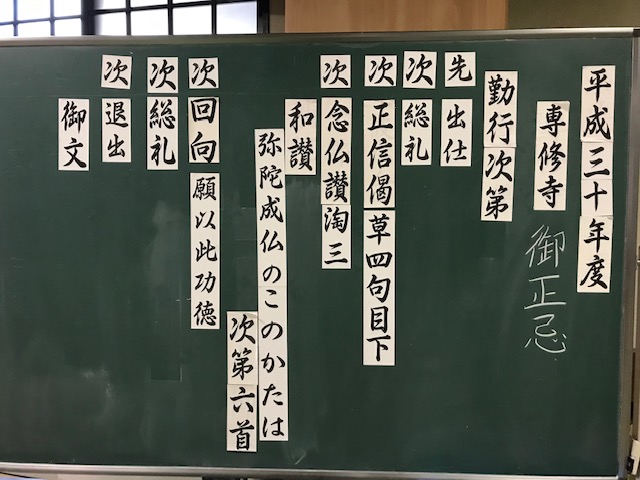 平成三十年度
専修寺 御正忌
勤行次第
先 出仕
次 総礼
次 正信偈 草四句目下
次 念仏讃 淘三
和讃
弥陀成仏のこのかたは
次第六首
次 回向 願以此功徳
次 総礼
次 退出
御文